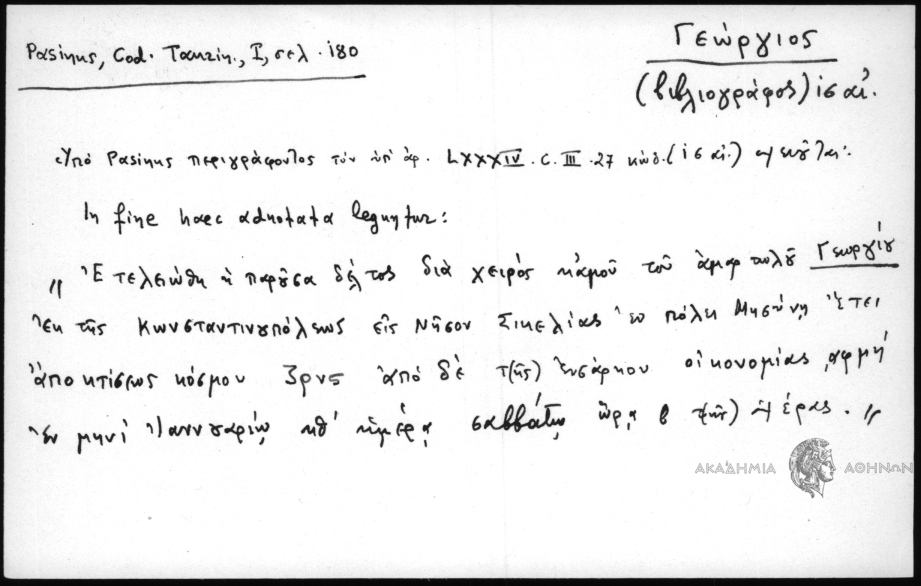 Pasinus, Cod. Taurin., I, σελ. 180
Γεώργιος
(βιβλιογράφος) ις αἰ.
Ὑπὸ Pasinus περιγράφοντος τὸν ὑπ' ἀρ. LXXXIV. C. III. 27 κώδ. (ις αἰ.)
In fine haec adnotata leguntur:
„ Ἐτελειώθη ἡ παροῦσα δέλτος διὰ χειρὸς κἀμοῦ τοῦ ἁμαρτωλοῦ Γεωργίου
ἐκ τῆς Κωνσταντινουπόλεως εἰς Νῆσον Σικελίας ἐν πόλει Μησύνη ἔτει
ἀπὸ κτίσεως κόσμου ζρνς ἀπὸ δὲ τ(ῆς) ἐνσάρκου οἰκονομίας ͵αφμή
ἐν μηνὶ Ἰαννουαρίῳ κθ' ἡμέρᾳ σαββάτῳ ὥρᾳ β τ(ῆς) ἡμέρας. „
ΑΚΑΔΗΜΙΑ ΑΘΗΝΩΝ